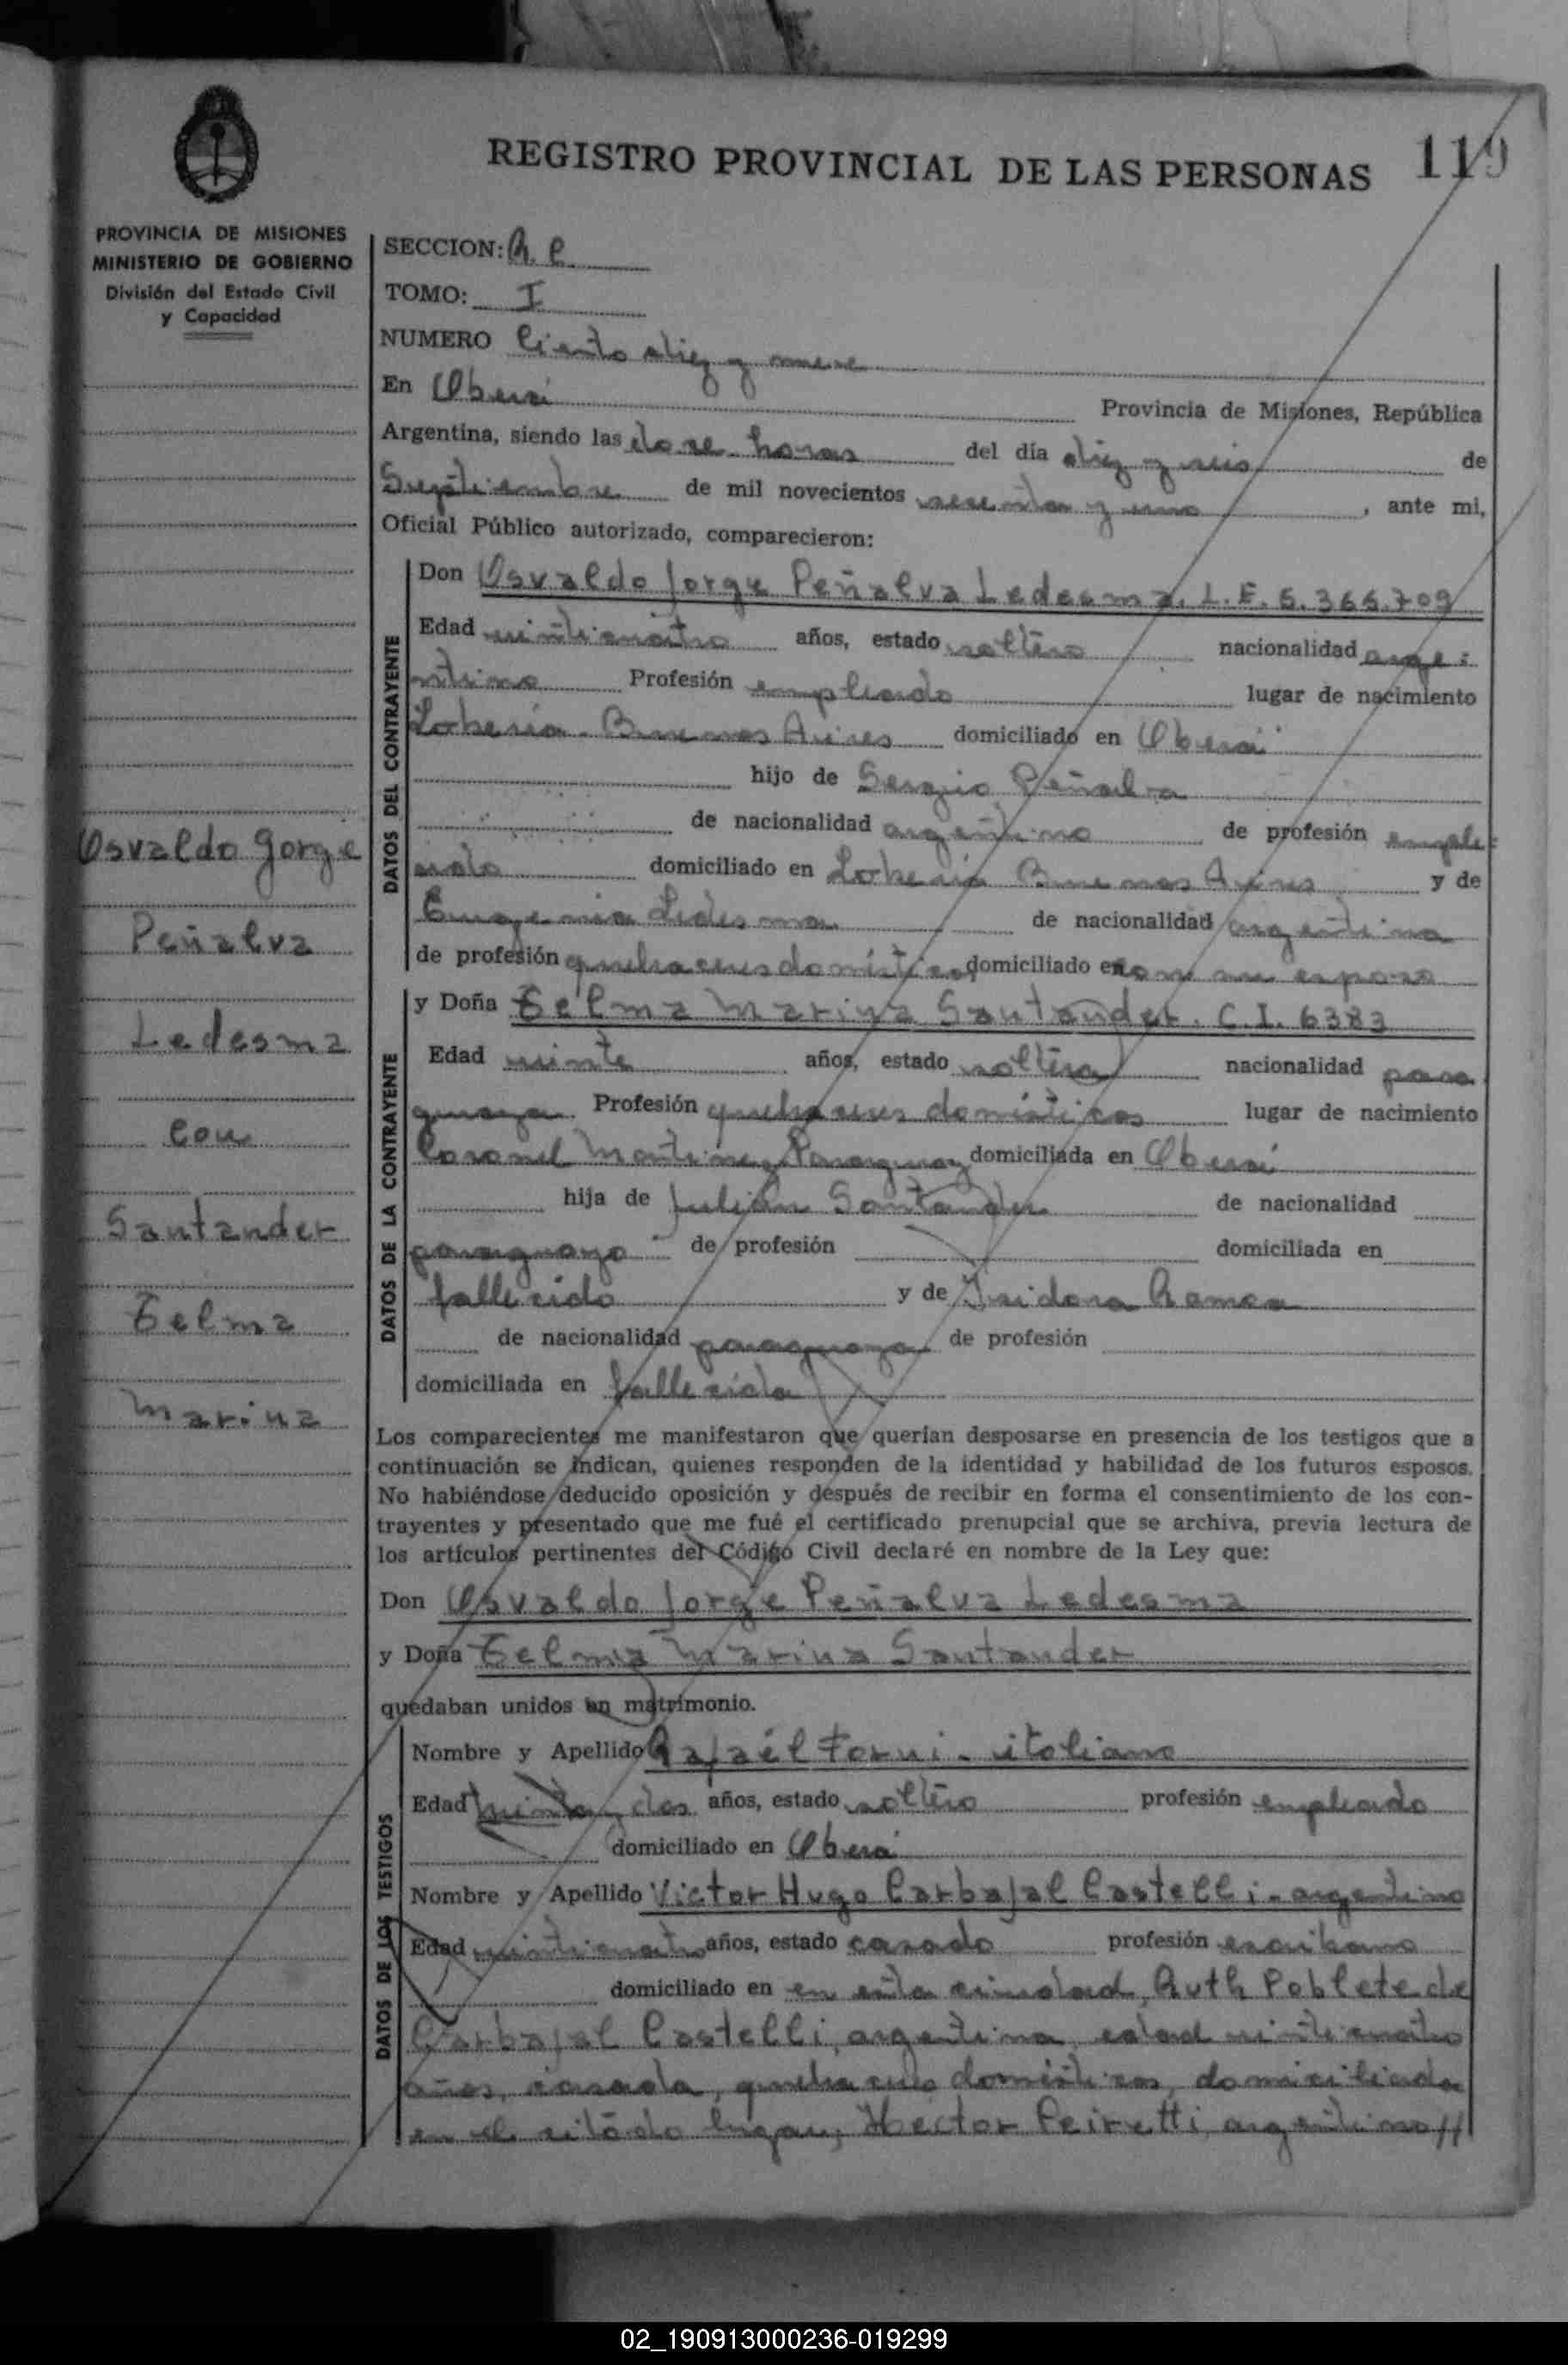 REGISTRO PROVINCIAL DE LAS PERSONAS 119
PROVINCIA DE MISIONES
MINISTERIO DE GOBIERNO
División del Estado Civil
y Capacidad
Osvaldo Jorge
Peñalva
Ledesma
con
Santander
Telma
Marina
SECCION: R. C.
TOMO: I
NUMERO Ciento diez y nueve
En Oberá Provincia de Misiones, República
Argentina, siendo las doce horas del día diez y seis de
Septiembre de mil novecientos sesenta y uno, ante mi,
Oficial Público autorizado, comparecieron:
DATOS DEL CONTRAYENTE
Don Osvaldo Jorge Peñalva Ledesma. L. E. 5.365.709
Edad veinticuatro años, estado soltero nacionalidad arge-
ntino Profesión empleado lugar de nacimiento
Lobería. Buenos Aires domiciliado en Oberá
hijo de Sergio Peñalva
de nacionalidad argentino de profesión emple-
ado domiciliado en Lobería Buenos Aires y de
Eugenia Ledesma de nacionalidad argentina
de profesión quehaceres domésticos domiciliado en con su esposo
DATOS DE LA CONTRAYENTE
y Doña Telma Marina Santander. C. I. 6383
Edad veinte años, estado soltera nacionalidad para
guaya. Profesión quehaceres domésticos lugar de nacimiento
Coronel Martinez Paraguay domiciliada en Oberá
hija de Julián Santander de nacionalidad
paraguayo de profesión domiciliada en
fallecido y de Isidora Romea
de nacionalidad paraguaya de profesión
domiciliada en fallecida
Los comparecientes me manifestaron que querían desposarse en presencia de los testigos que a
continuación se indican, quienes responden de la identidad y habilidad de los futuros esposos.
No habiéndose deducido oposición y después de recibir en forma el consentimiento de los con-
trayentes y presentado que me fué el certificado prenupcial que se archiva, previa lectura de
los artículos pertinentes del Código Civil declaré en nombre de la Ley que:
Don Osvaldo Jorge Peñalva Ledesma
y Doña Telma Marina Santander
quedaban unidos en matrimonio.
DATOS DE LOS TESTIGOS
Nombre y Apellido Rafaél Forni. italiano
Edad treinta y dos años, estado soltero profesión empleado
domiciliado en Oberá
Nombre y Apellido Victor Hugo Carbajal Castelli. argentino
Edad veinticuatro años, estado casado profesión escribano
domiciliado en en esta ciudad, Ruth Poblete de
Carbajal Castelli, argentina, edad veinticuatro
años, casada, quehaceres domésticos, domiciliada
en el citado lugar, Hector Peiretti, argentino //
02_190913000236-019299